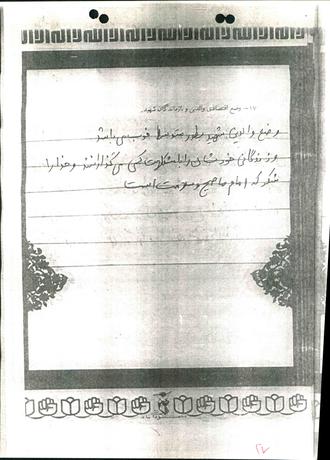 ۱۷- وضع اقتصادی والدین و بازماندگان شهید
وضع والدین شهید بطور متوسط خوب می باشد
و زندگانی خودشان را با مشکلات کمی می گذرانند و خدا را
شکر که امام ما صحیح و سلامت است